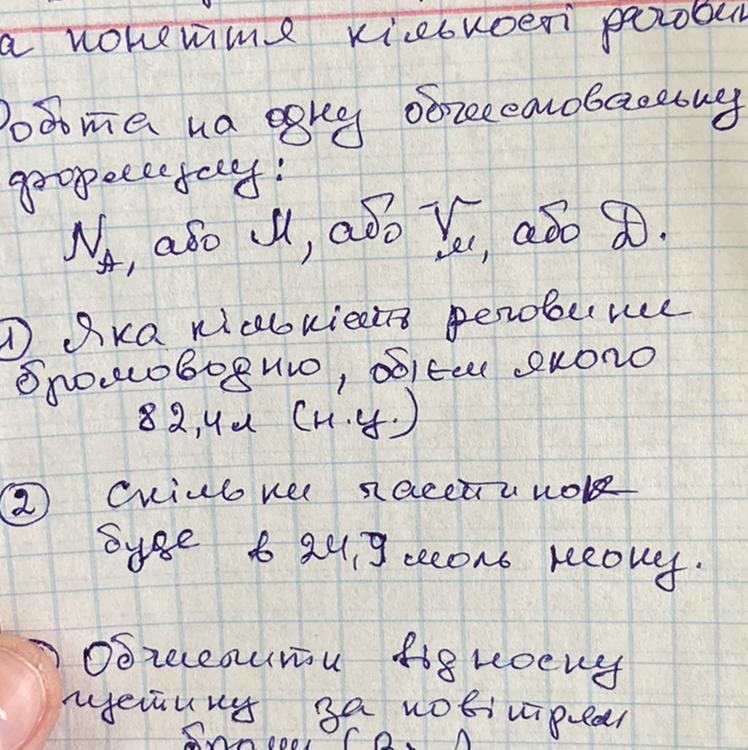 а понеття кількості речовин
Робота на одну обчислювальну
формулу:
N_A, або M, або V_м, або D.
1) Яка кількість речовини
бромоводню, обієм якого
82,4л (н.у.)
2 Скільки частинок
буде в 24,9 моль неону.
Обчислити відносну
густину за повітрям